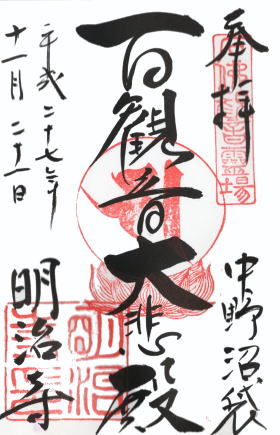 奉拝
中野沼袋
百観音大悲殿
平成二十七年
十一月二十一日
明治寺